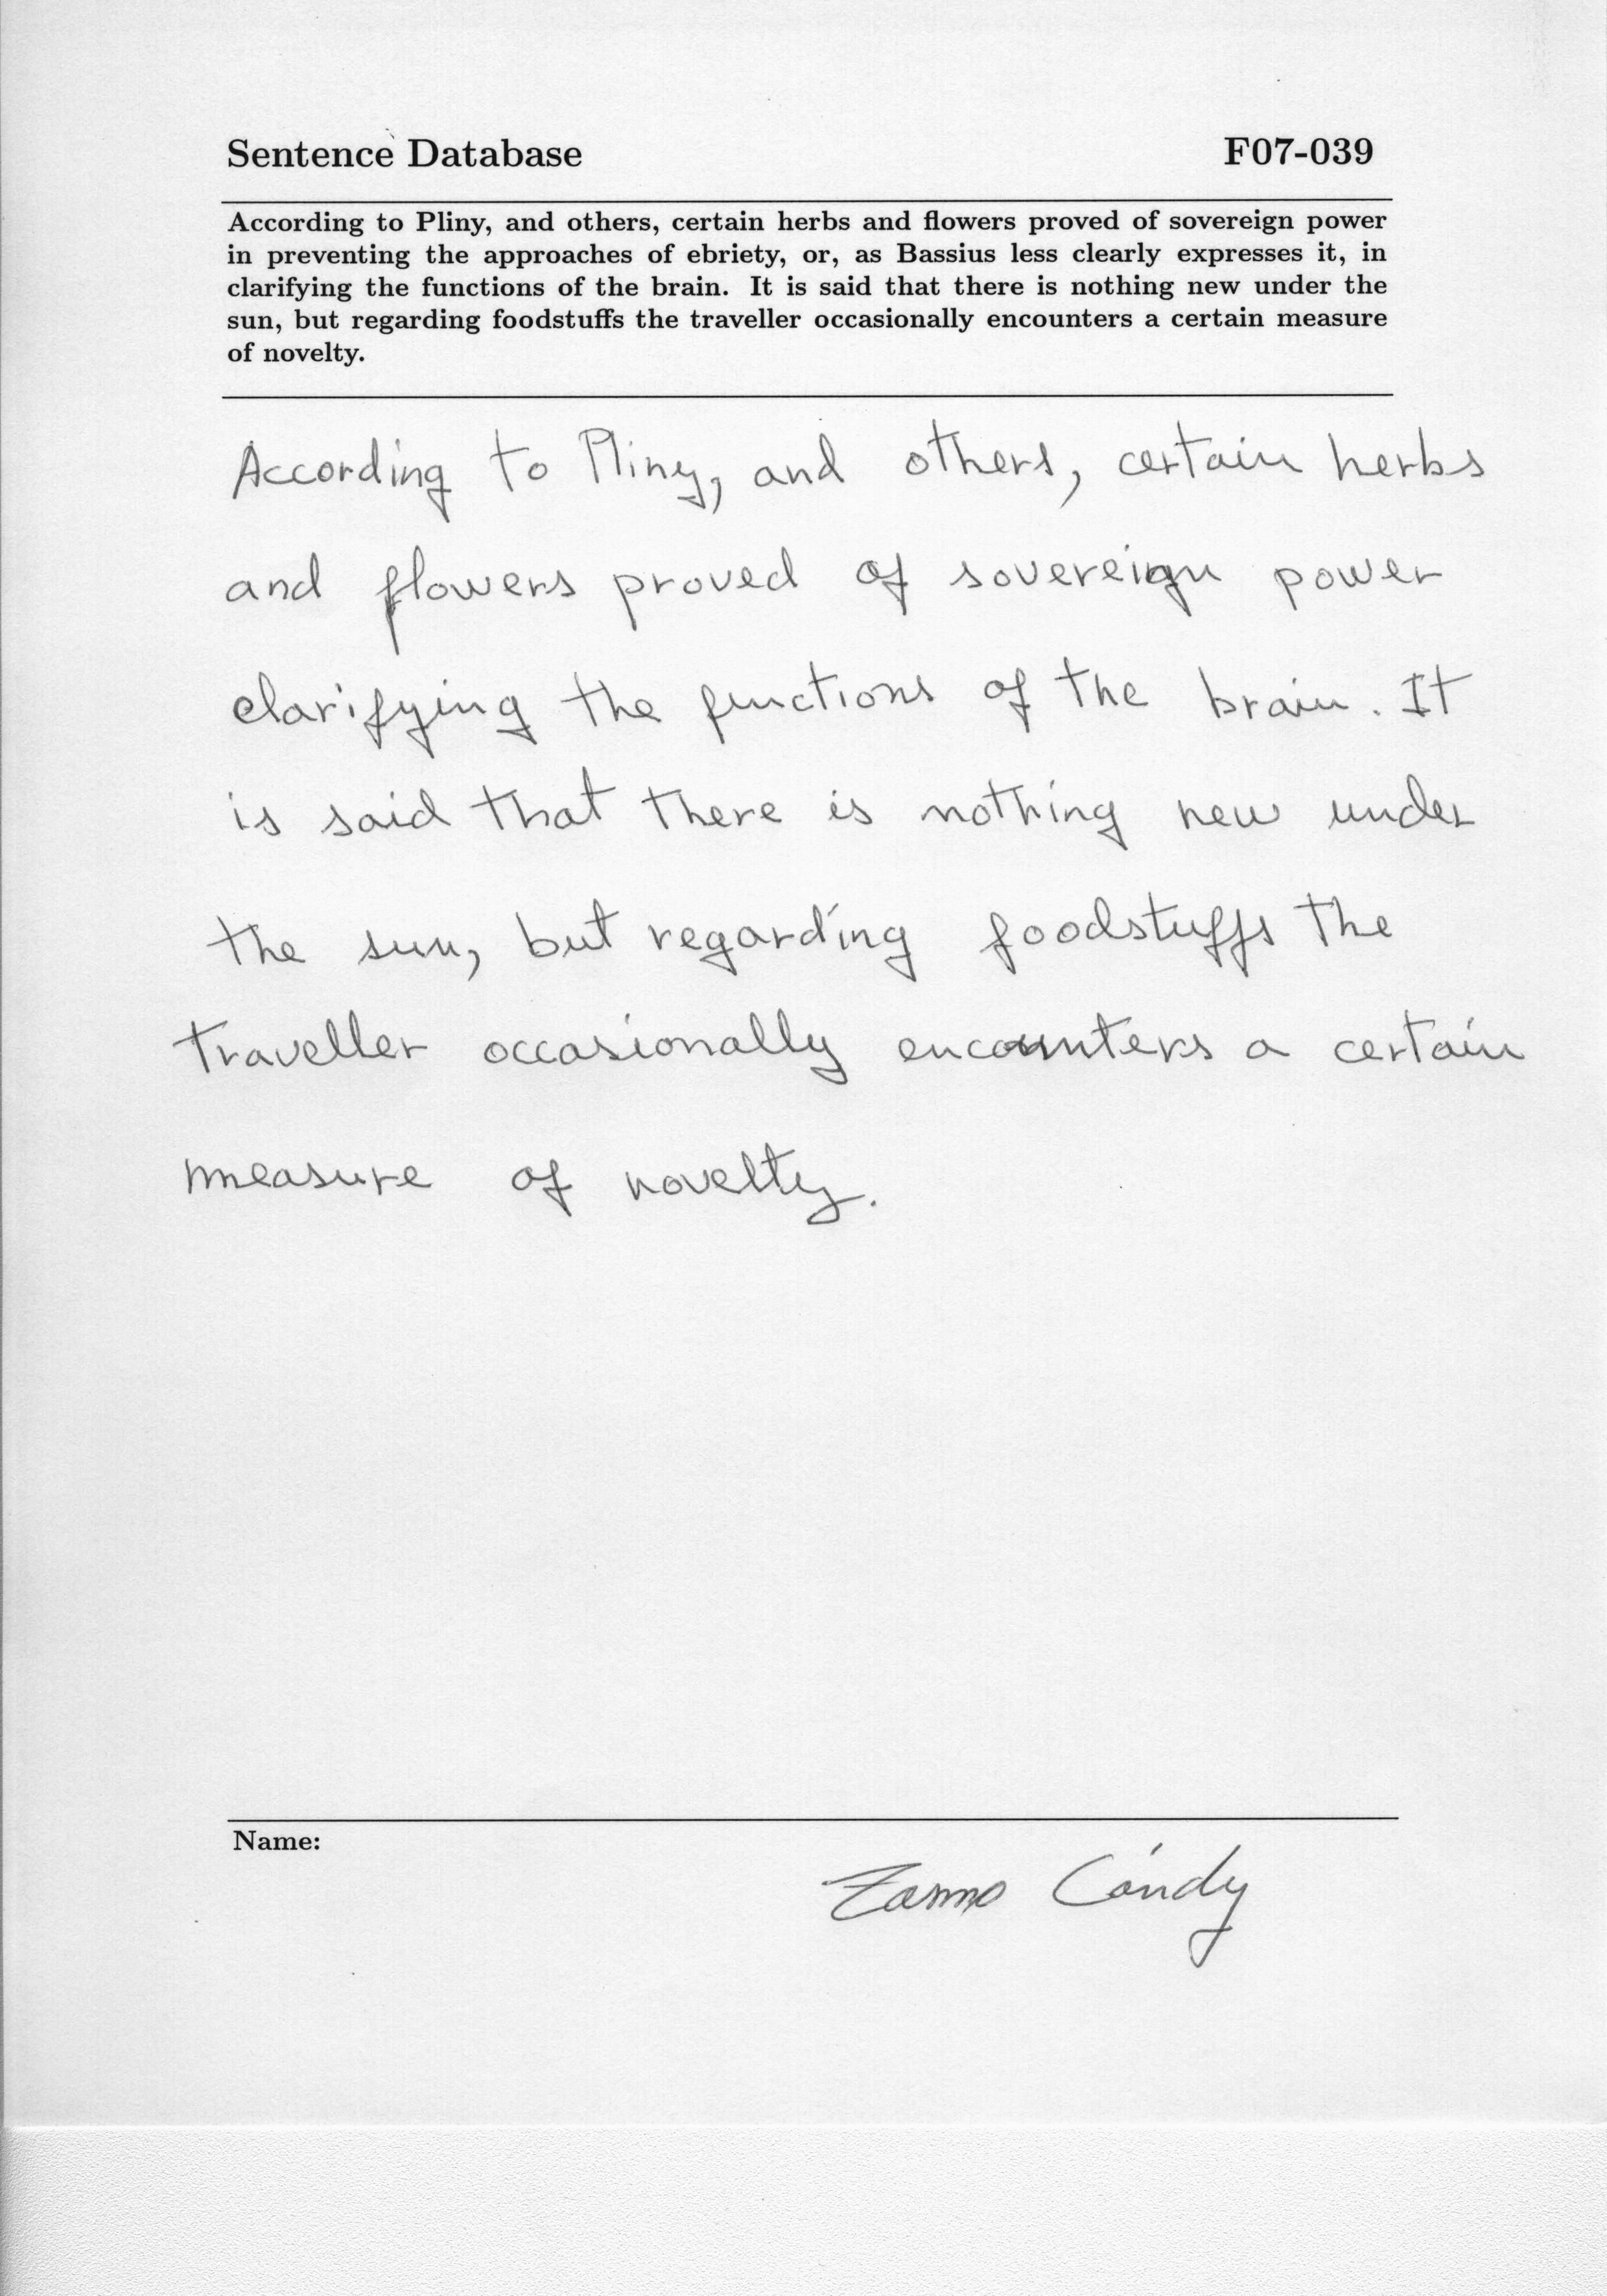 Sentence Database F07-039
According to Pliny, and others, certain herbs and flowers proved of sovereign power
in preventing the approaches of ebriety, or, as Bassius less clearly expresses it, in
clarifying the functions of the brain. It is said that there is nothing new under the
sun, but regarding foodstuffs the traveller occasionally encounters a certain measure
of novelty.
According to Pliny, and others, certain herbs
and flowers proved of sovereign power
clarifying the functions of the brain. It
is said that there is nothing new under
the sun, but regarding foodstuffs the
traveller occasionally encounters a certain
measure of novelty.
Name:
Candy